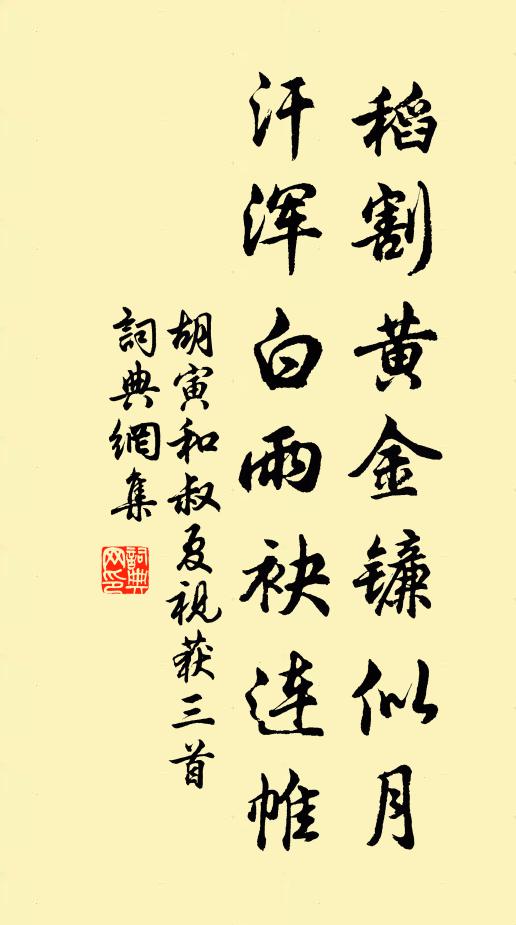 稻割黄金镰似月
汗浑白雨袂连帷
胡寅和叔夏视获三首
詞典網集
詞典网印